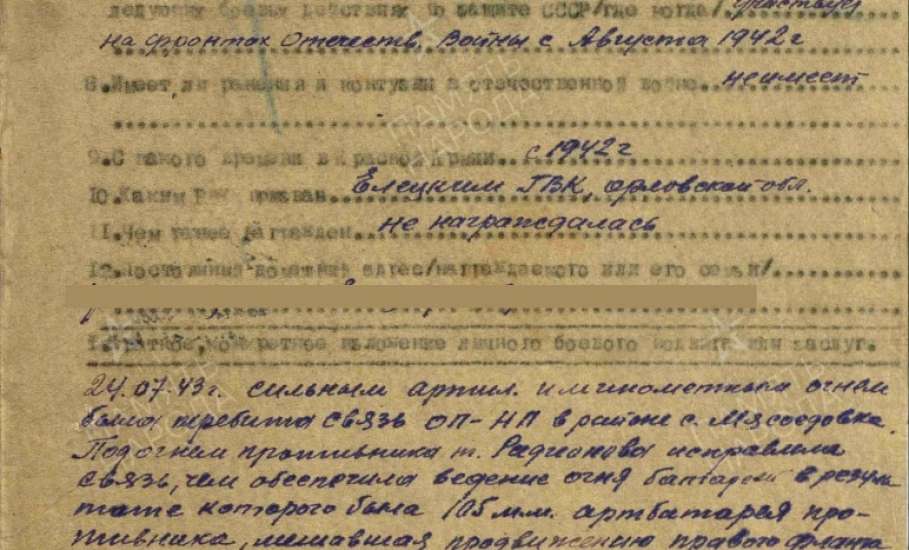 ледующих боевых действиях по защите СССР/где когда/ участвует
на фронтах Отечеств. Войны с Августа 1942 г
8.Имеет ли ранения и контузии в отечественной войне не имеет
9.С какого времени в Красной Армии с 1942 г
10.Каким РВК призван Елецким ГВК, Орловской обл.
11.Чем ранее награжден не награждалась
12.Постоянный домашний адрес/награждаемого или его семьи/
1.Краткое, конкретное изложение личного боевого подвига или заслуг.
24.07.43г. сильным артил. и минометным огнем
была перебита связь ОП-НП в районе с. Мясоедовка.
Под огнем противника т. Радионова исправила
связь, чем обеспечила ведение огня батареи в резуль
тате которого была 105 м.м. артбатарея про-
тивника, мешавшая продвижению правого фланга
ПАМЯТЬ
НАРОДА